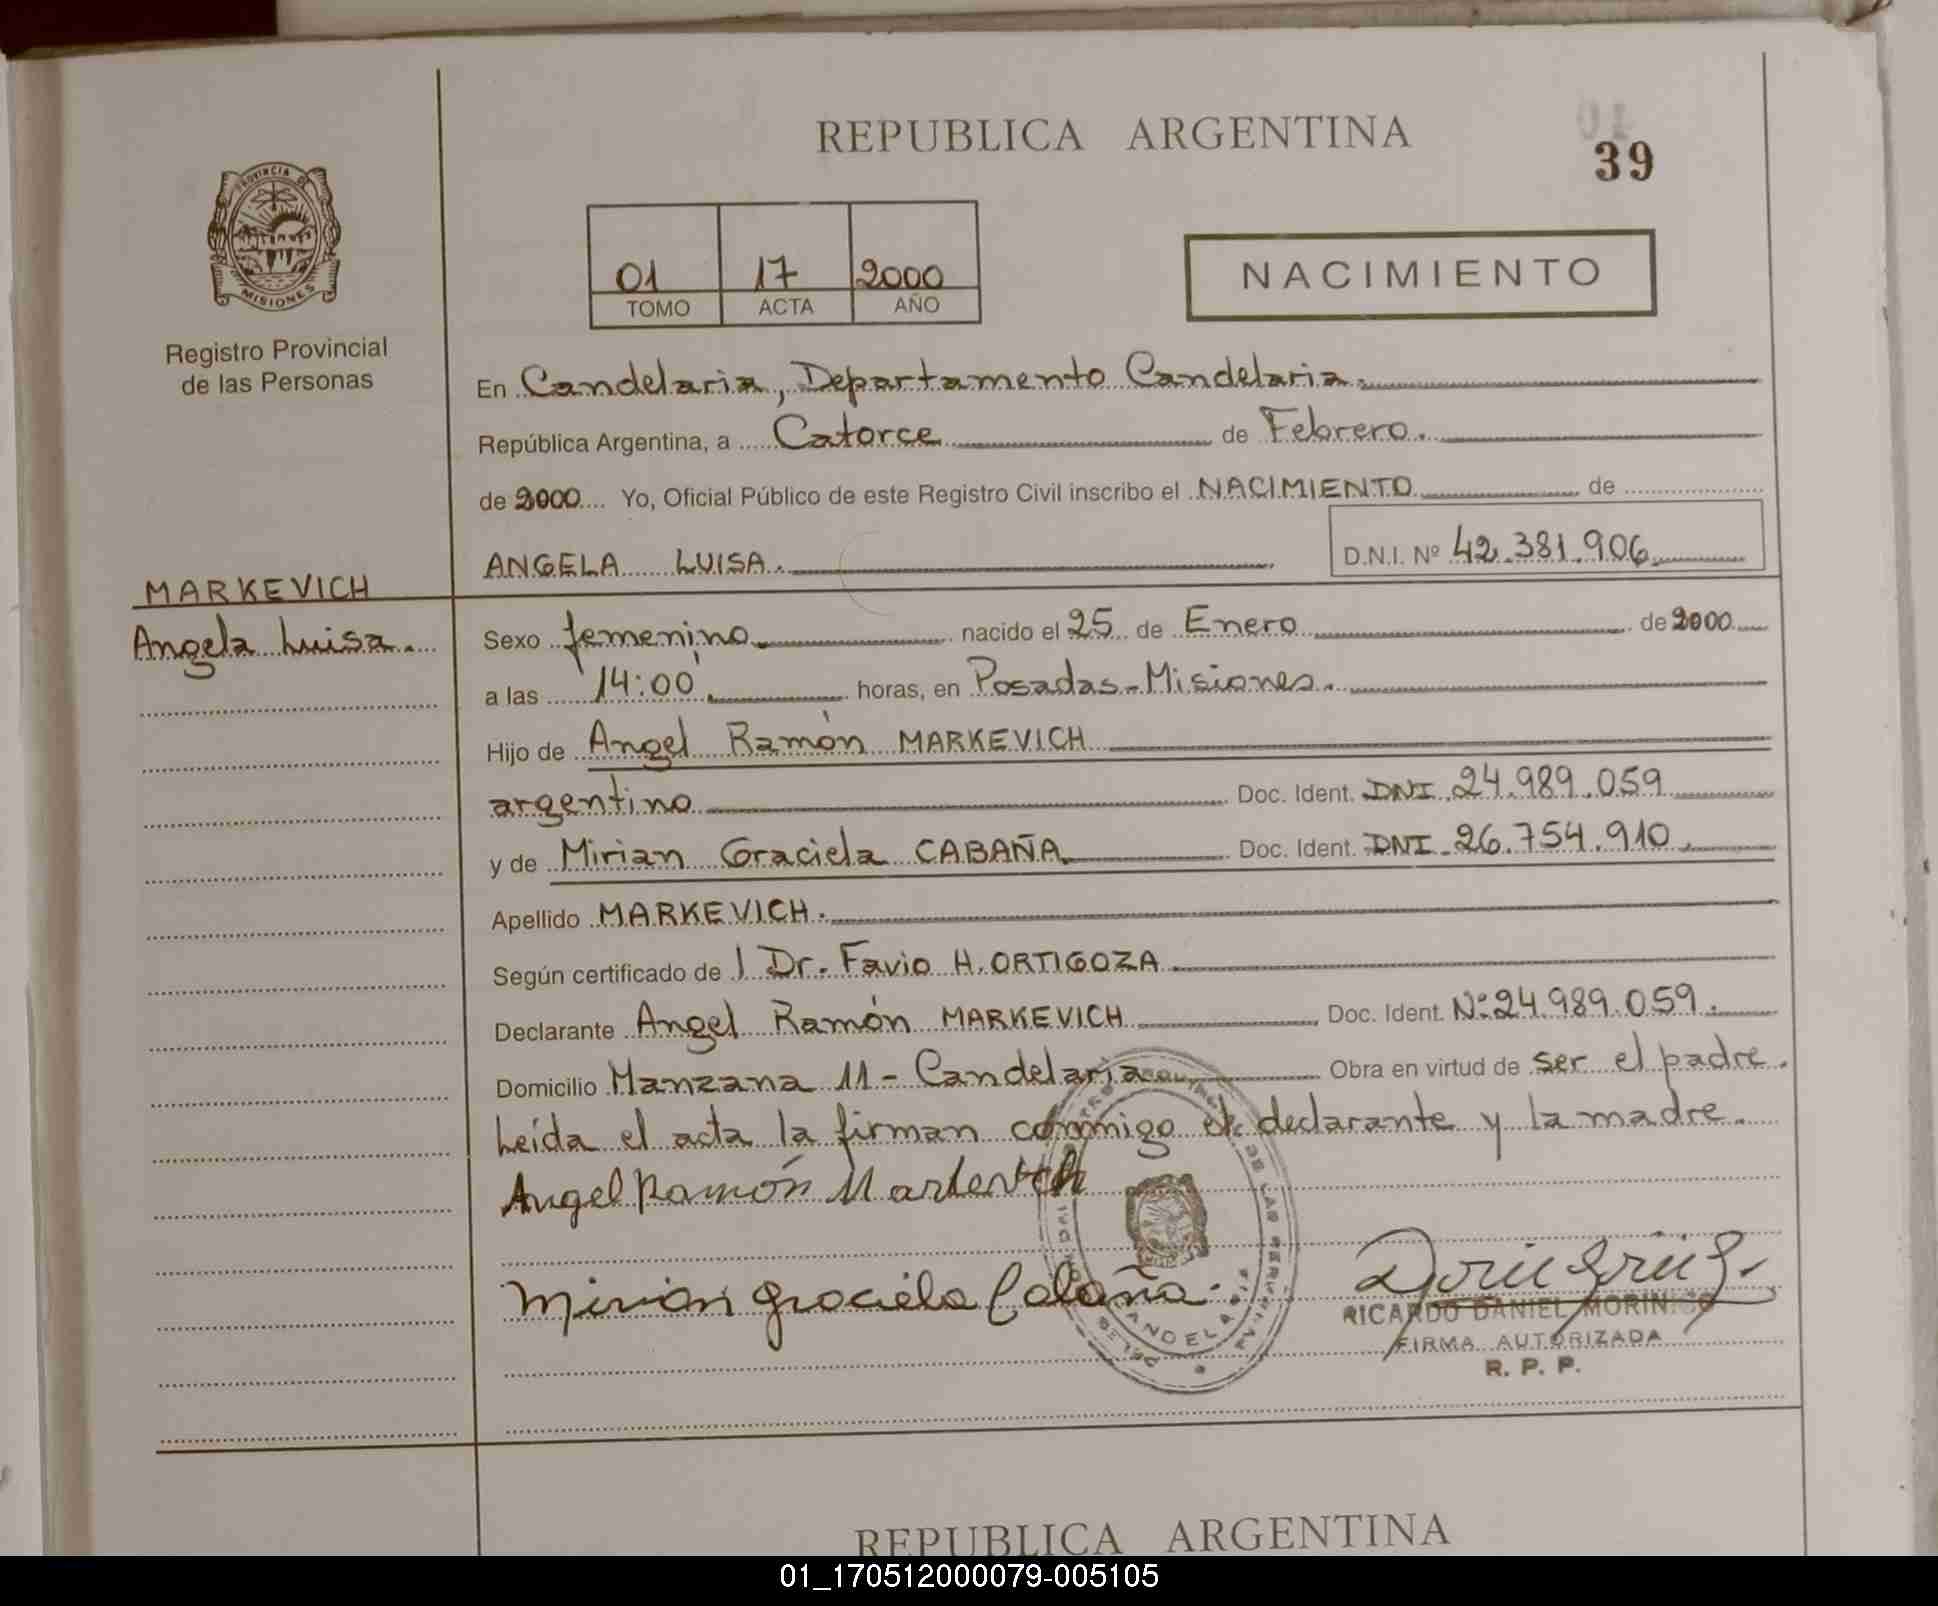 REPUBLICA ARGENTINA
39
PROVINCIA DE
MISIONES
Registro Provincial
de las Personas
01 17 2000
TOMO ACTA AÑO
NACIMIENTO
En Candelaria, Departamento Candelaria.
República Argentina, a Catorce de Febrero.
de 2000 Yo, Oficial Público de este Registro Civil inscribo el NACIMIENTO de
ANGELA LUISA. D.N.I. Nº 42.381.906
MARKEVICH
Angela Luisa.
Sexo femenino nacido el 25 de Enero de 2000
a las 14:00' horas, en Posadas-Misiones.
Hijo de Angel Ramón MARKEVICH
argentino Doc. Ident. DNI 24.989.059
y de Mirian Graciela CABAÑA Doc. Ident. DNI 26.754.910
Apellido MARKEVICH.
Según certificado de l Dr. Favio H. ORTIGOZA
Declarante Angel Ramón MARKEVICH Doc. Ident. Nº 24.989.059.
Domicilio Manzana 11 - Candelaria Obra en virtud de ser el padre.
Leída el acta la firman conmigo el declarante y la madre.
Angel Ramón Markevich
Mirian Graciela Cabaña.
RICARDO DANIEL MORINIGO
FIRMA AUTORIZADA
R. P. P.
REPUBLICA ARGENTINA
01_170512000079-005105